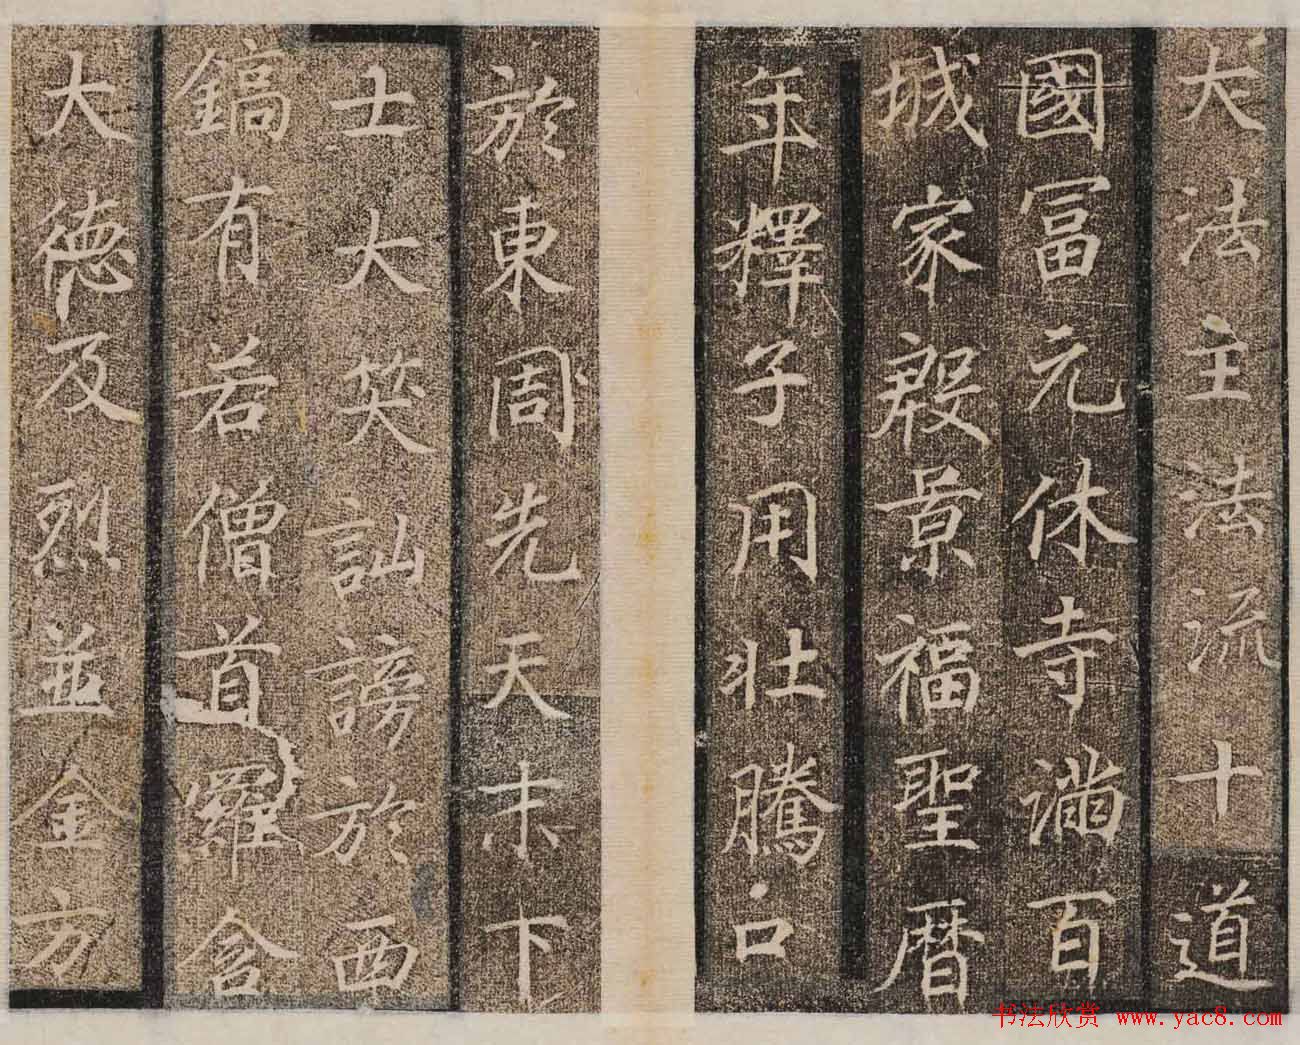 大法主法流十道
國冨元休寺滿百
城家殷景福聖暦
年釋子用壯騰口
於東周先天末下
士大笑訕謗於西
鎬有若僧道羅含
大德及烈並金方
书法欣赏 www.yac8.com